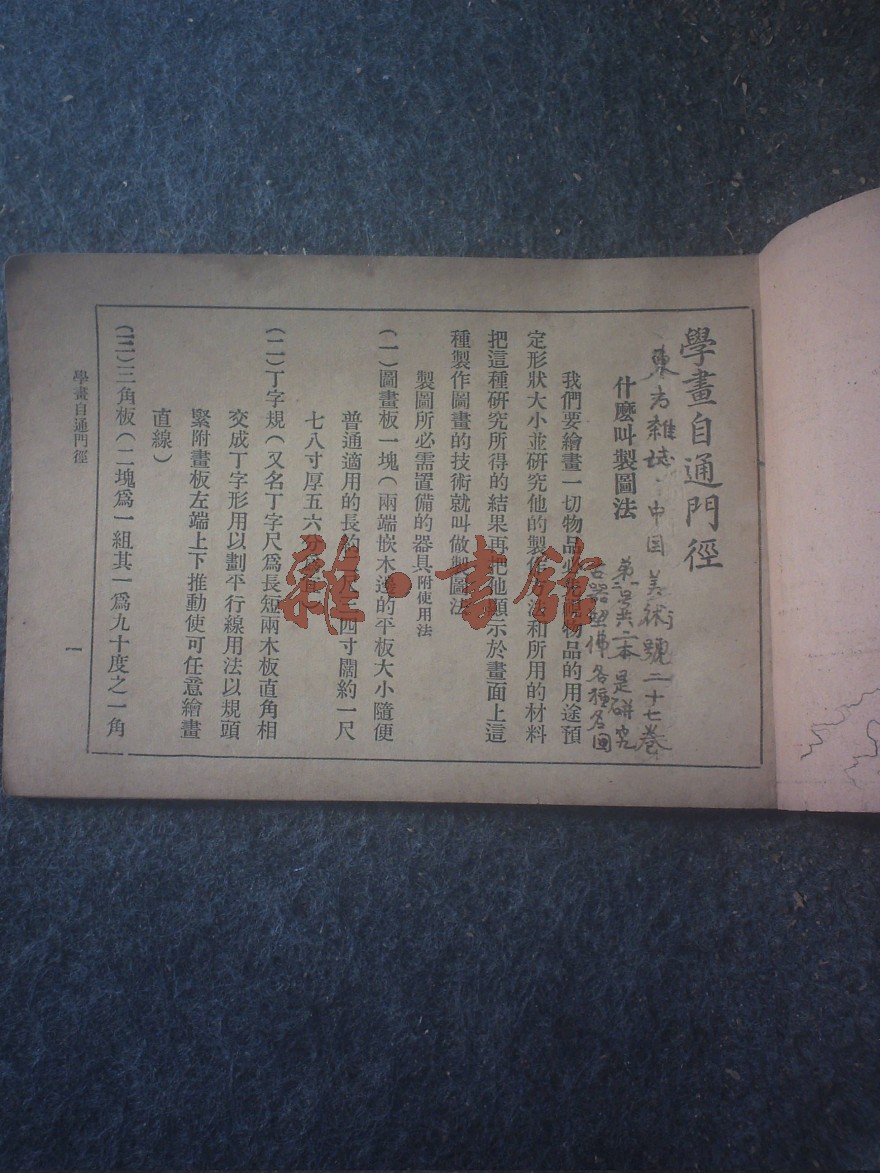 學畫自通門徑
東方雜誌·中国美術號二十七卷
第一号共二本是研究
古器塑佛各種名画
什麼叫製圖法
我們要繪畫一切物品必先視物品的用途預
定形狀大小並研究他的製作方法和所用的材料
把這種研究所得的結果再把他顯示於畫面上這
種製作圖畫的技術就叫做製圖法
製圖所必需置備的器具附使用法
(一)圖畫板一塊(兩端嵌木邊的平板大小隨便
普通適用的長約二尺三四寸闊約一尺
七八寸厚五六分
(二)丁字規(又名丁字尺爲長短兩木板直角相
交成丁字形用以劃平行線用法以規頭
緊附畫板左端上下推動使可任意繪畫
直線)
(三)三角板(二塊爲一組其一爲九十度之一角
學畫自通門徑
一
雜·書館